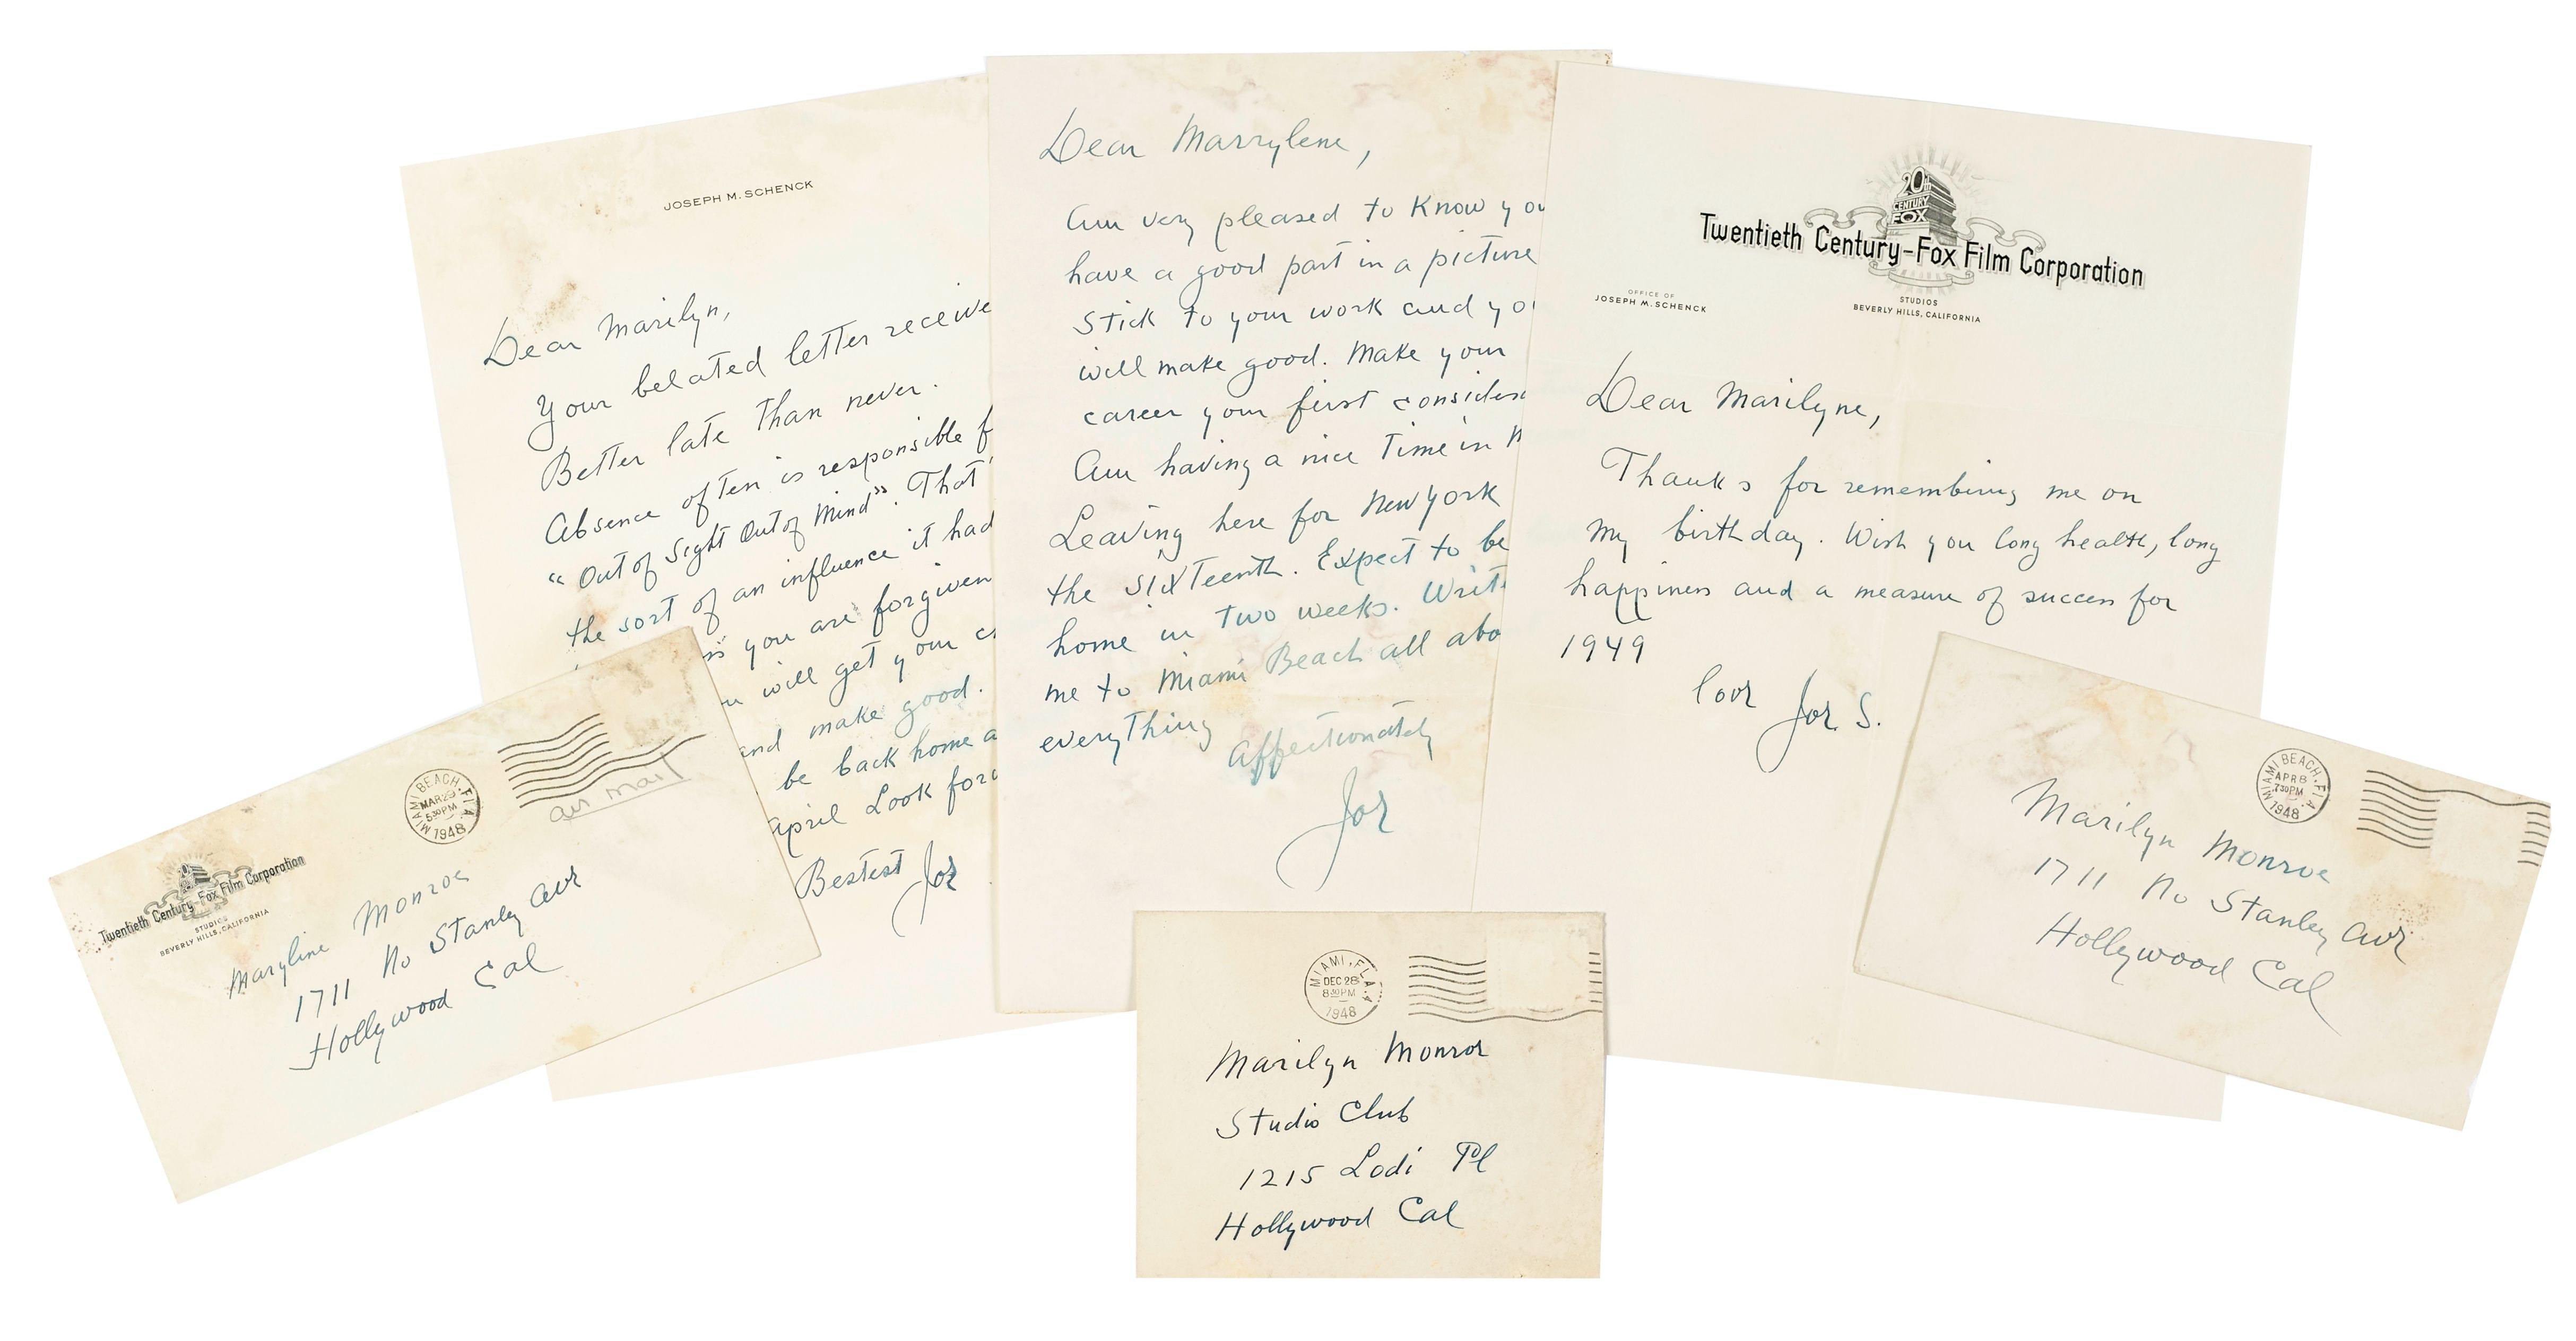 JOSEPH M. SCHENCK
Dear Marilyn,
Your belated letter receive
Better late than never.
Absence often is responsible f
"Out of Sight Out of Mind". That
the sort of an influence it had
you are forgiven
will get your
and make good.
be back home a
April Look forw
Bestest Joe
Dear Marrylene,
Am very pleased to Know you
have a good part in a picture
Stick to your work and you
will make good. Make your
career your first consider
Am having a nice Time in M
Leaving here for New York
the sixTeenth. Expect to be
home in Two weeks. Write
me to Miami Beach all abo
everyThing
Affectionately
Joe
20th
CENTURY
FOX
Twentieth Century-Fox Film Corporation
OFFICE OF
JOSEPH M. SCHENCK
STUDIOS
BEVERLY HILLS, CALIFORNIA
Dear Marilyne,
Thanks for remembring me on
my birthday. Wish you long health, long
happiness and a measure of success for
1949
love Joe S.
MIAMI BEACH, FLA.
MAR 29
5 30 PM
1948
air mail
Twentieth Century-Fox Film Corporation
STUDIOS
BEVERLY HILLS, CALIFORNIA
Maryline Monroe
1711 No Stanley ave
Hollywood Cal
MIAMI, FLA.
DEC 28
8 30 PM
1948
Marilyn Monroe
Studio Club
1215 Lodi Pl
Hollywood Cal
MIAMI BEACH, FLA.
APR 8
7 30 PM
1948
Marilyn Monroe
1711 No Stanley ave
Hollywood Cal